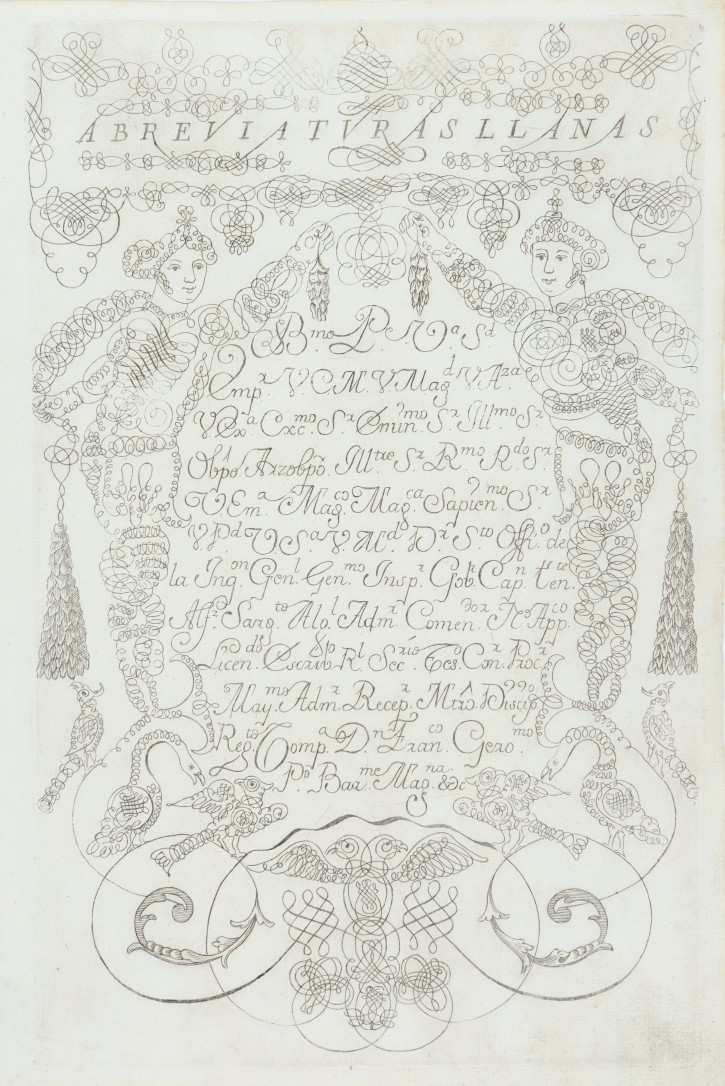 ABREVIATVRAS LLANAS
B.mo P. V.a S.d
Emp.r V.C.M. V.Mag.d V.A.za
V.Ex.a Exc.mo S.r Emin.mo S.r Ill.mo S.r
Obpo. Arzobpo. Ill.tre S.r R.mo R.do S.r
V.Em.a Mag.co Mag.ca Sapien.mo S.r
V.P.d V.S.a V.M.d D.r S.to Offi.o de
la Inq.on Gen.l Gen.mo Insp.r Gob.r Cap.n tten.te
Alf.z Sarg.to Alg.l Adm.r Comen.dor App.co
Licen.do Escrib.o R.l Sec.rio Tes.o Con.r Proc.r
May.mo Adm.r Recep.r Mtro. Discip.o
Reg.to Comp.a D.n Fran.co Gero.mo
P.o Bar.me Mag.na &c